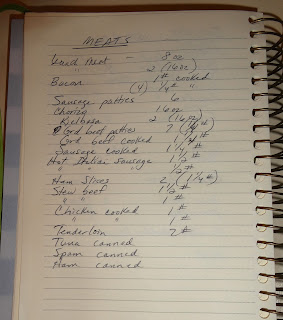 MEATS
Dried Meat - 8 oz
" 2 (16oz)
Bacon 1# cooked
(4) 1/4# "
Sausage patties 6
Chorizo 16oz
Kielbasa 2 (16oz)
Grd beef patties 7 (1/4#)
Grd beef cooked 1 1/2#
Sausage cooked 1 1/2#
Hot Italian Sausage 1#
" " " 1/2#
Ham Slices 2 (1 1/4#)
Stew beef 1 1/2#
" " 1#
Chicken cooked 1#
" " 1#
Tenderloin 2#
Tuna canned
Spam canned
Ham canned